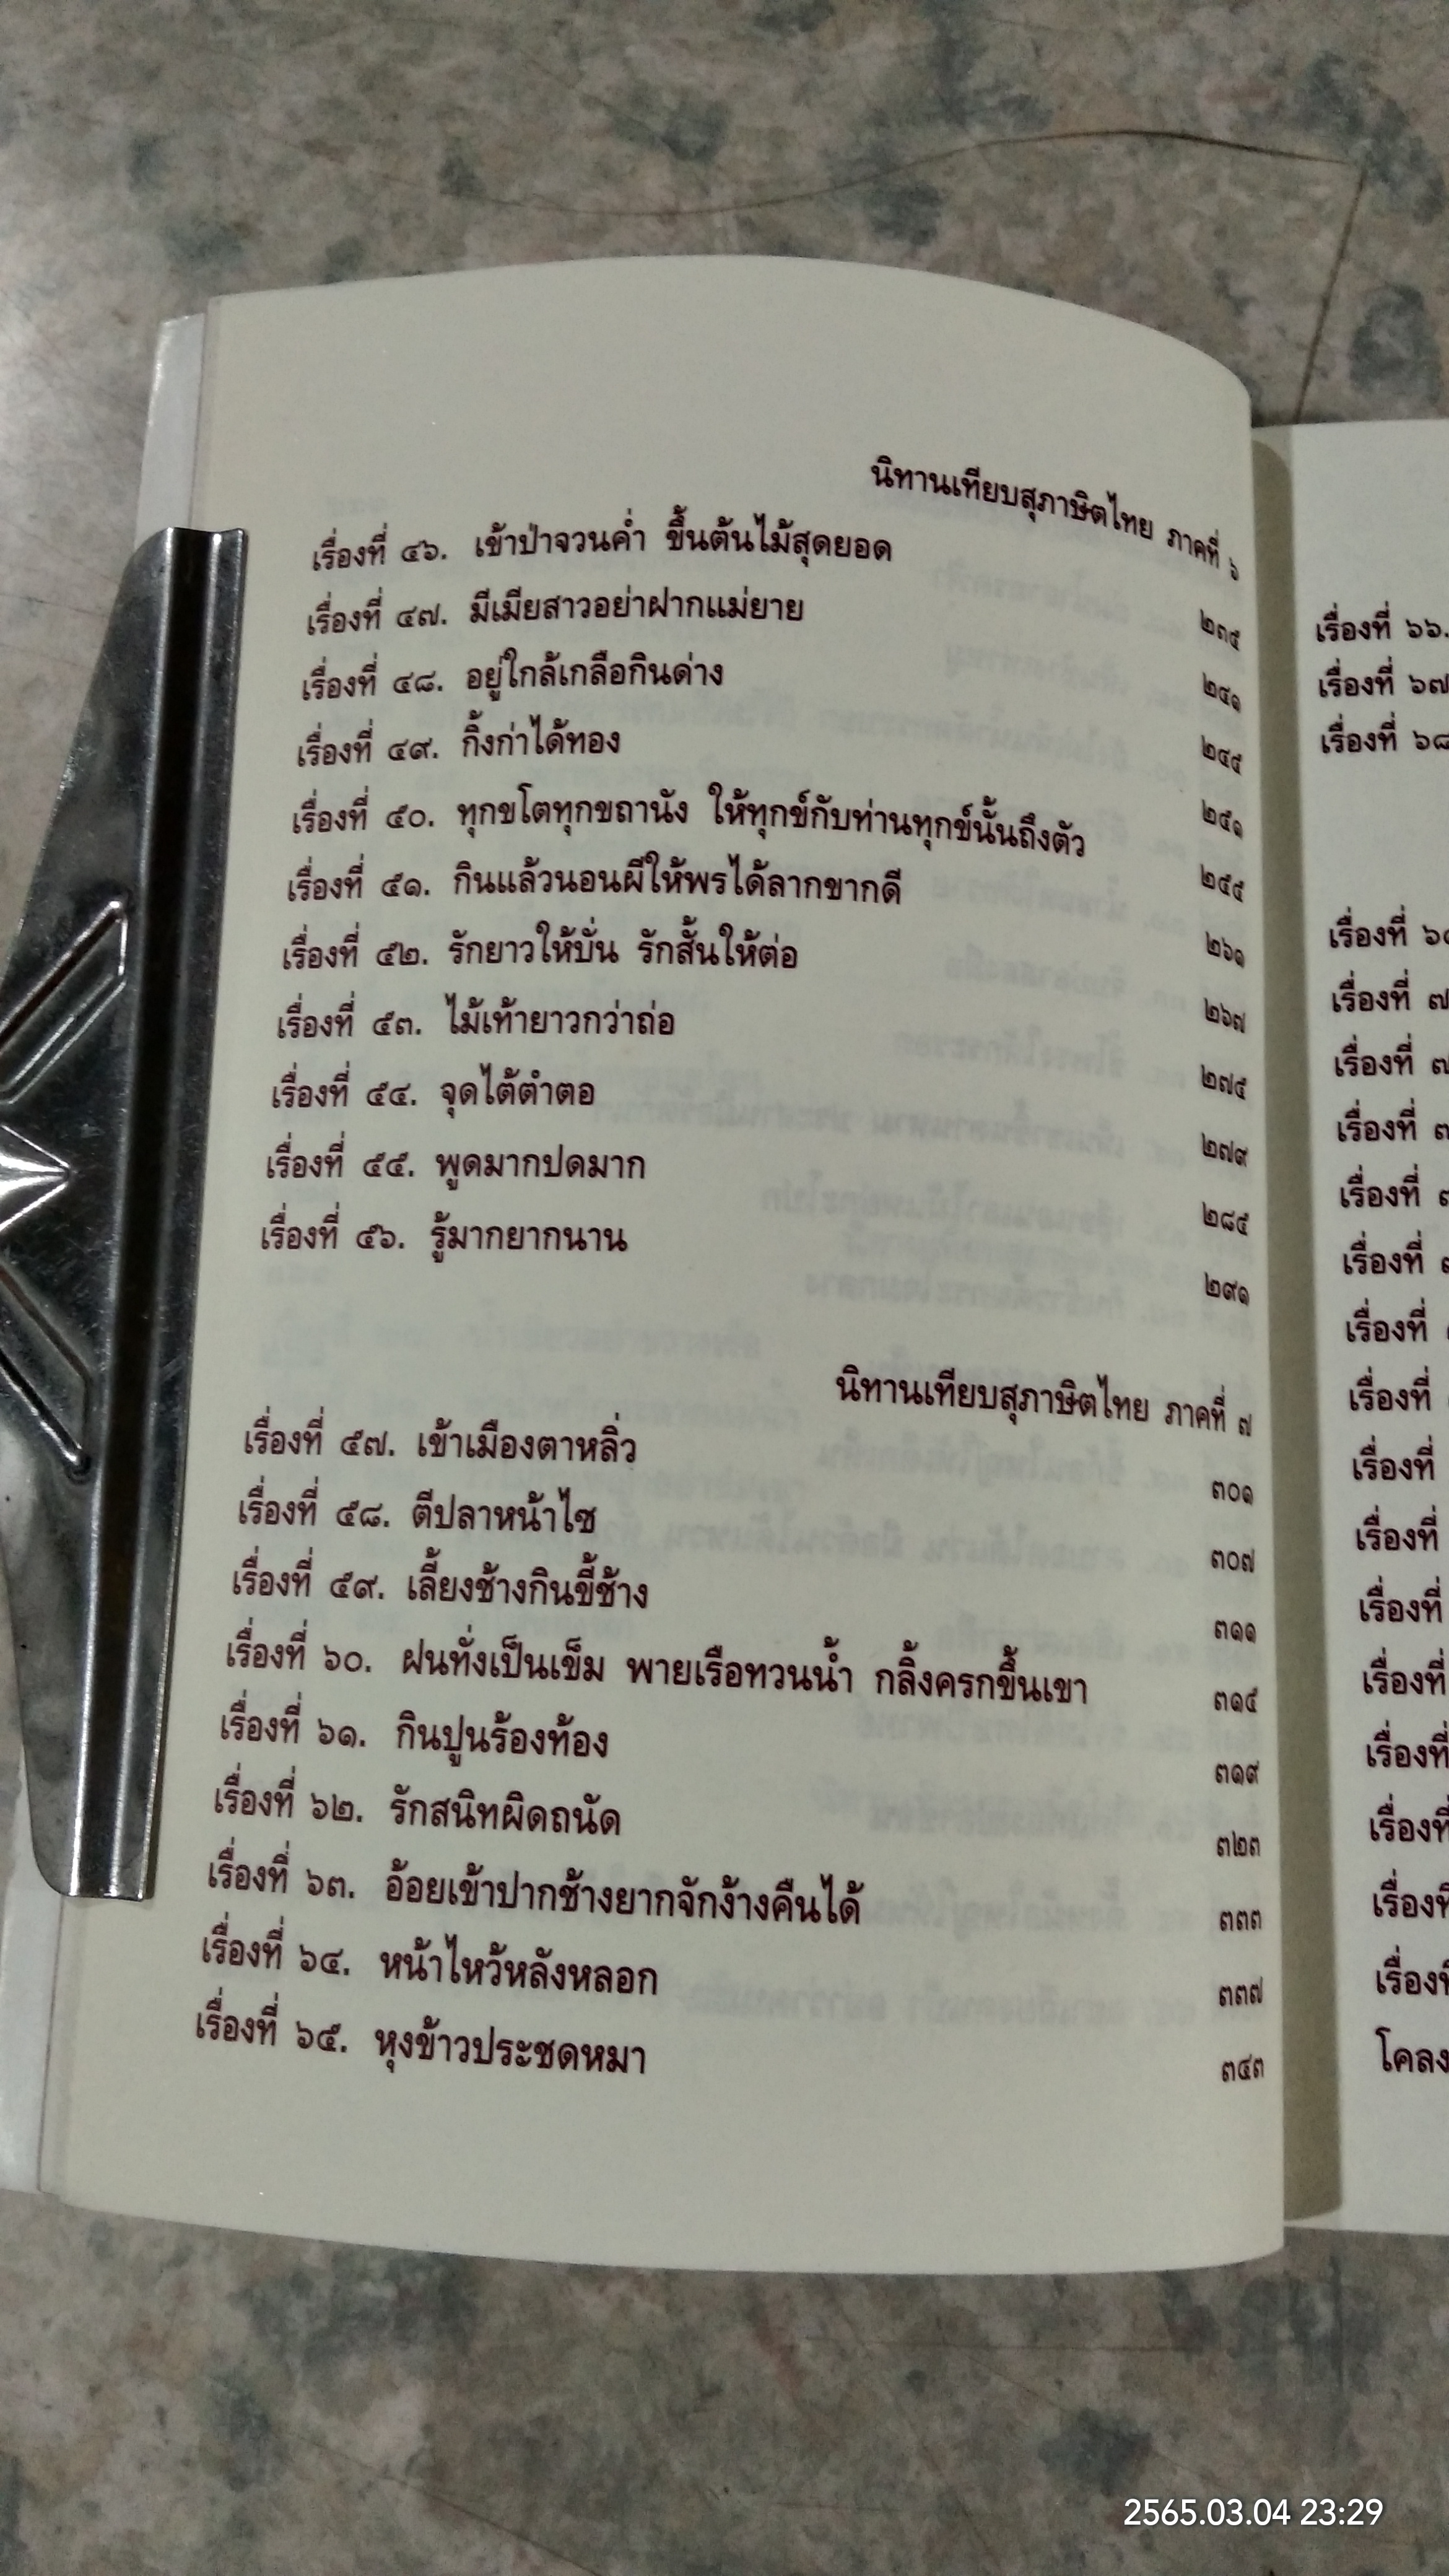 นิทานเทียบสุภาษิตไทย ภาคที่ ๖
เรื่องที่ ๔๖. เข้าป่าจวนค่ำ ขึ้นต้นไม้สุดยอด ๒๓๕
เรื่องที่ ๔๗. มีเมียสาวอย่าฝากแม่ยาย ๒๔๑
เรื่องที่ ๔๘. อยู่ใกล้เกลือกินด่าง ๒๔๕
เรื่องที่ ๔๙. กิ้งก่าได้ทอง ๒๕๑
เรื่องที่ ๕๐. ทุกขโตทุกขถานัง ให้ทุกข์กับท่านทุกข์นั้นถึงตัว ๒๕๕
เรื่องที่ ๕๑. กินแล้วนอนผีให้พรได้ลากขากดี ๒๖๑
เรื่องที่ ๕๒. รักยาวให้บั่น รักสั้นให้ต่อ ๒๖๗
เรื่องที่ ๕๓. ไม้เท้ายาวกว่าถ่อ ๒๗๕
เรื่องที่ ๕๔. จุดไต้ตำตอ ๒๗๙
เรื่องที่ ๕๕. พูดมากปดมาก ๒๘๕
เรื่องที่ ๕๖. รู้มากยากนาน ๒๙๑
นิทานเทียบสุภาษิตไทย ภาคที่ ๗
เรื่องที่ ๕๗. เข้าเมืองตาหลิ่ว ๓๐๑
เรื่องที่ ๕๘. ตีปลาหน้าไซ ๓๐๗
เรื่องที่ ๕๙. เลี้ยงช้างกินขี้ช้าง ๓๑๑
เรื่องที่ ๖๐. ฝนทั่งเป็นเข็ม พายเรือทวนน้ำ กลิ้งครกขึ้นเขา ๓๑๕
เรื่องที่ ๖๑. กินปูนร้องท้อง ๓๑๙
เรื่องที่ ๖๒. รักสนิทผิดถนัด ๓๒๓
เรื่องที่ ๖๓. อ้อยเข้าปากช้างยากจักง้างคืนได้ ๓๓๓
เรื่องที่ ๖๔. หน้าไหว้หลังหลอก ๓๓๗
เรื่องที่ ๖๕. หุงข้าวประชดหมา ๓๔๓
เรื่องที่ ๖๖.
เรื่องที่ ๖๗
เรื่องที่ ๖๘
เรื่องที่
เรื่องที่
เรื่องที่
เรื่องที่
เรื่องที่
เรื่องที่
เรื่องที่
เรื่องที่
เรื่องที่
เรื่องที่
เรื่องที่
เรื่องที่
เรื่องที่
เรื่องที่
โคลง
2565.03.04 23:29